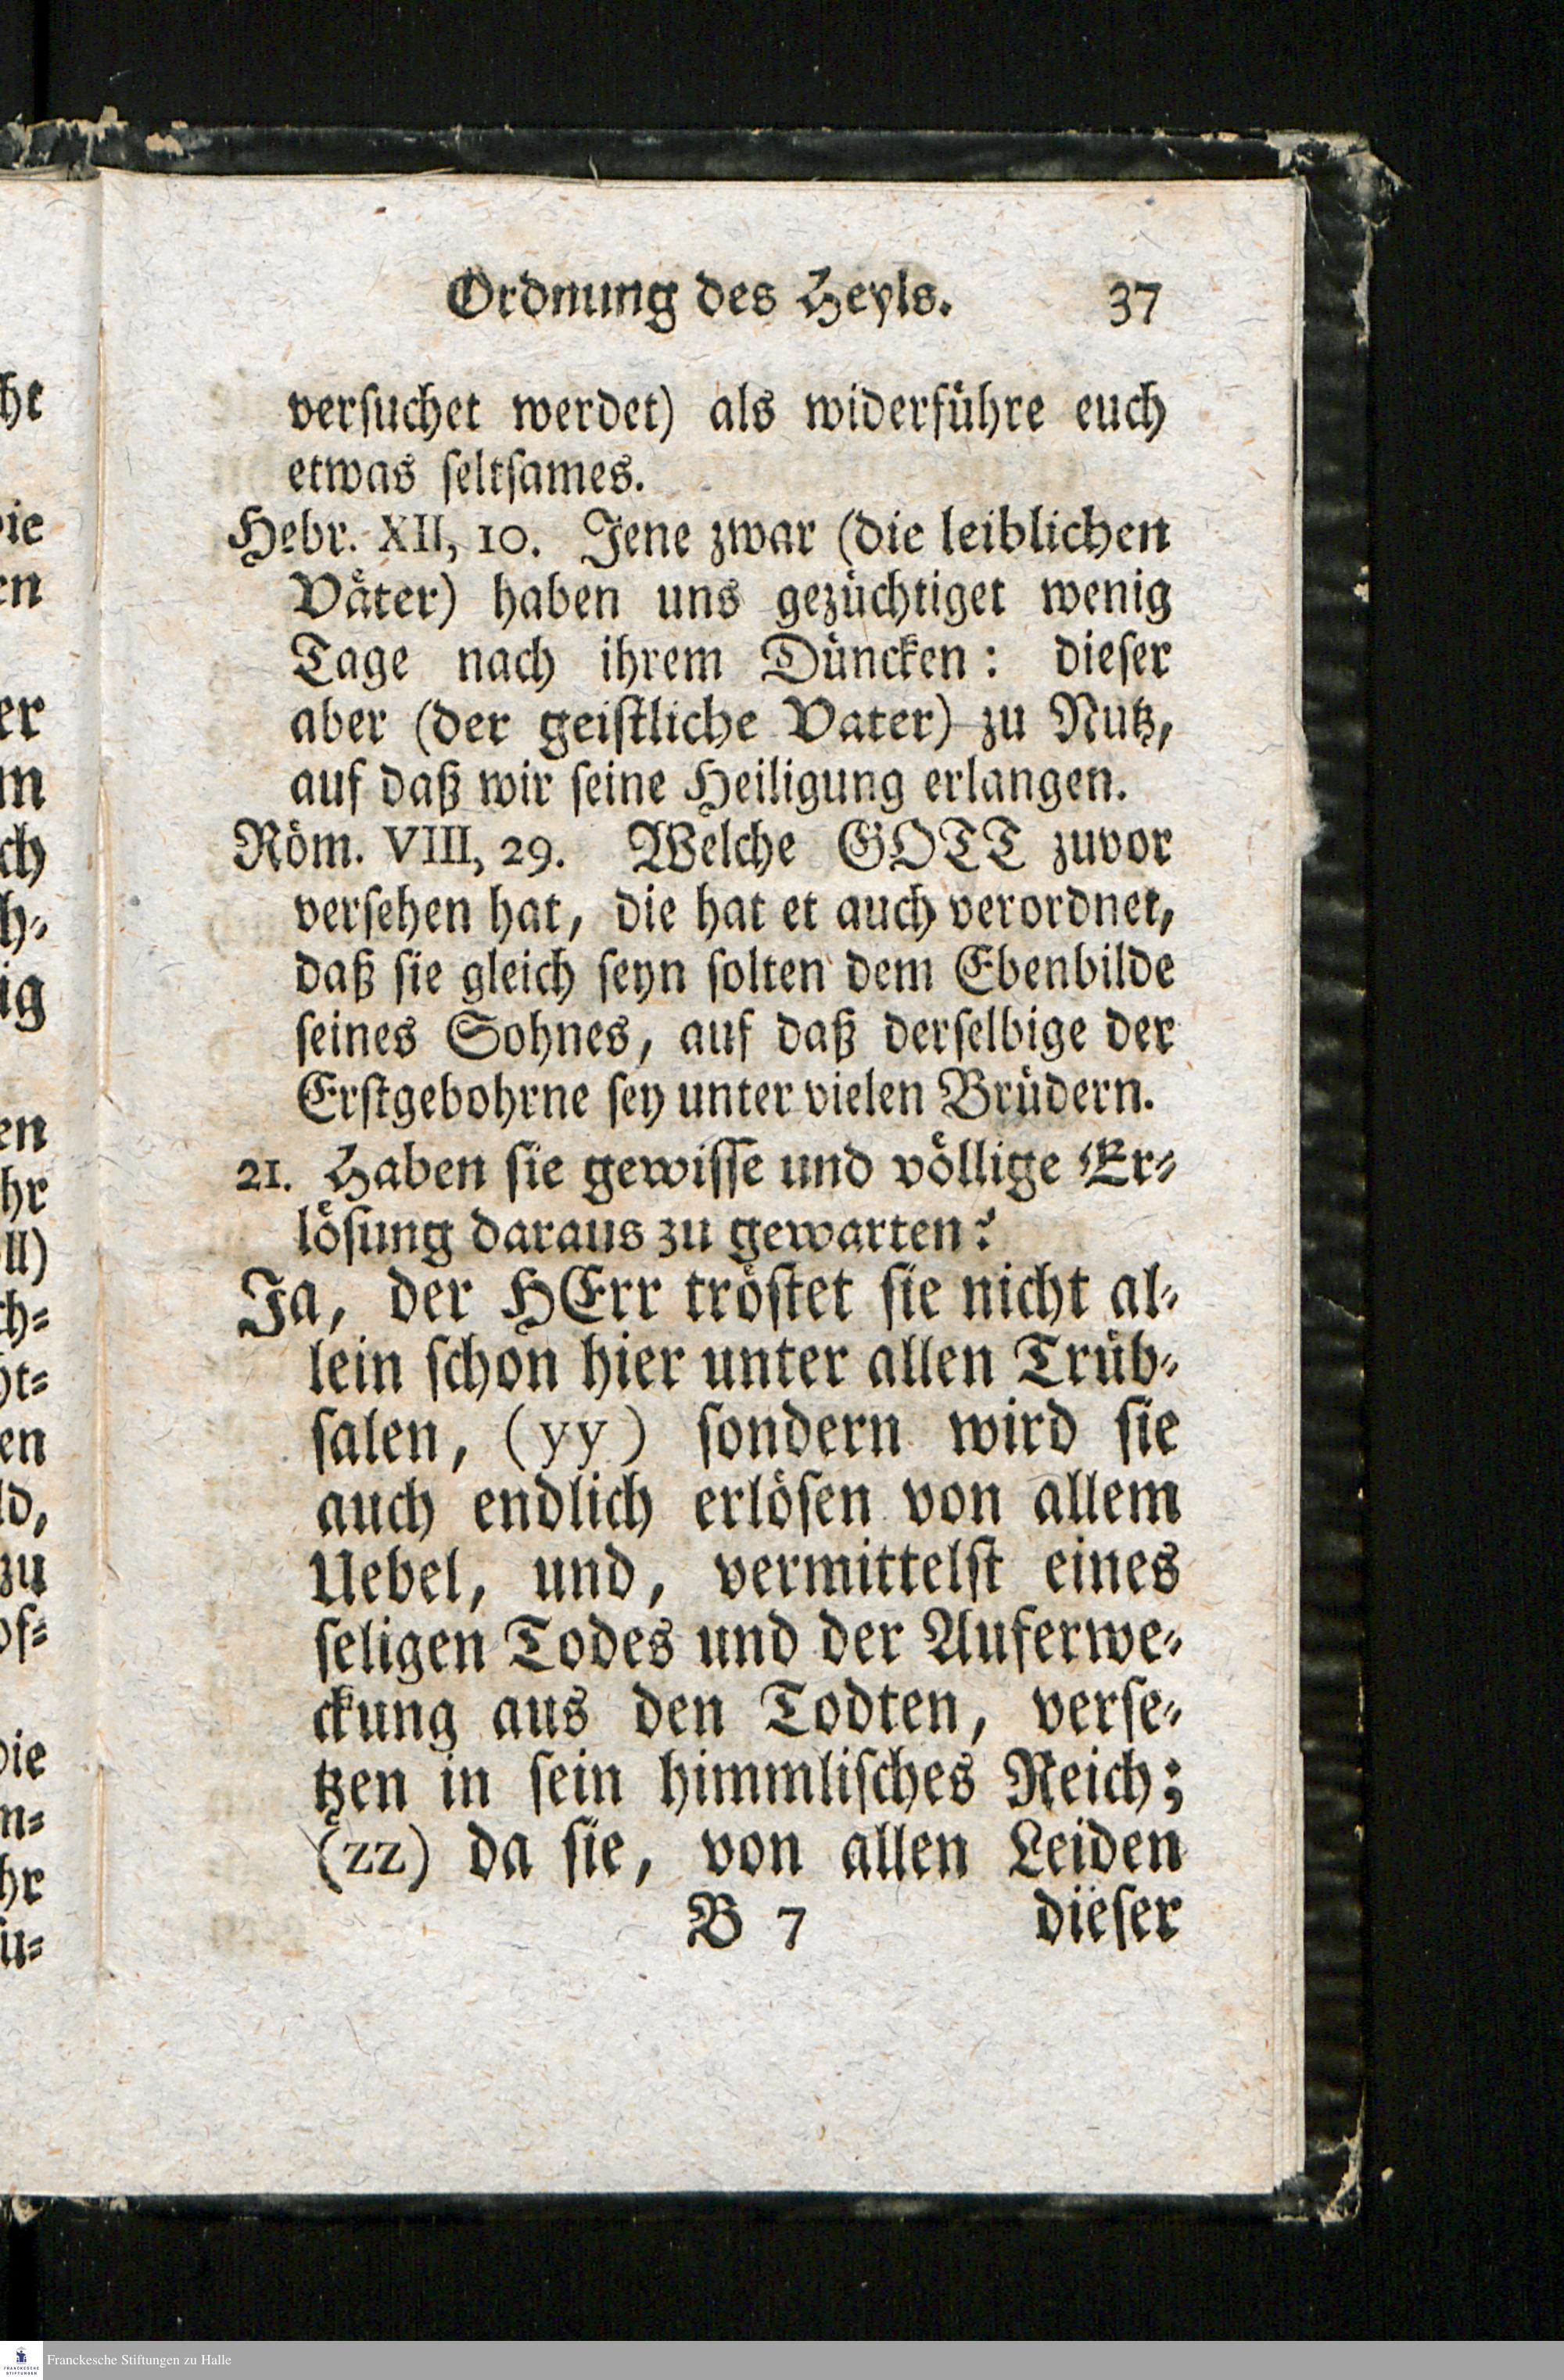 Ordnung des Heyls. 37
verſuchet werdet) als widerführe euch
etwas ſeltſames.
Hebr. XII, 10. Jene zwar (die leiblichen
Väter) haben uns gezüchtiget wenig
Tage nach ihrem Düncken: dieſer
aber (der geiſtliche Vater) zu Nutz,
auf daß wir ſeine Heiligung erlangen.
Röm. VIII, 29. Welche GOTT zuvor
verſehen hat, die hat et auch verordnet,
daß ſie gleich ſeyn ſolten dem Ebenbilde
ſeines Sohnes, auf daß derſelbige der
Erſtgebohrne ſey unter vielen Brüdern.
21. Haben ſie gewiſſe und völlige Er⸗
löſung daraus zu gewarten?
Ja, der HErr tröſtet ſie nicht al⸗
lein ſchon hier unter allen Trüb⸗
ſalen, (yy) ſondern wird ſie
auch endlich erlöſen von allem
Uebel, und, vermittelſt eines
ſeligen Todes und der Auferwe⸗
ckung aus den Todten, verſe⸗
tzen in ſein himmliſches Reich;
(zz) da ſie, von allen Leiden
B 7 dieſer
Franckesche Stiftungen zu Halle